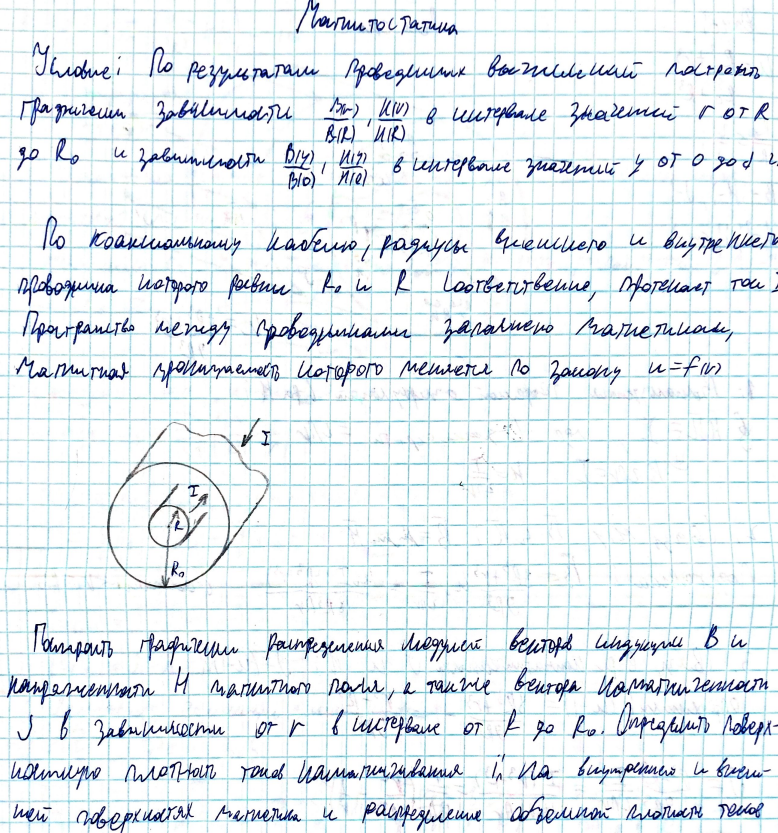 Магнитостатика
Условие: По результатам проведенных вычислений построить
графически зависимости B(r)/B(R), H(r)/H(R) в интервале значений r от R
до R₀ и зависимости B(y)/B(0), H(y)/H(0) в интервале значений y от 0 до d
По коаксиальному кабелю, радиусы внешнего и внутреннего
проводника которого равны R₀ и R соответственно, протекает ток I
Пространство между проводниками заполнено магнетиком,
магнитная проницаемость которого меняется по закону μ=f(r)
I
I
R
R₀
Построить графически распределения модулей векторов индукции B и
напряженности H магнитного поля, а также вектора намагниченности
J в зависимости от r в интервале от R до R₀. Определить поверх-
ностную плотность токов намагничивания i'ₙ на внутренней и внеш-
ней поверхностях магнетика и распределение объемной плотности токов